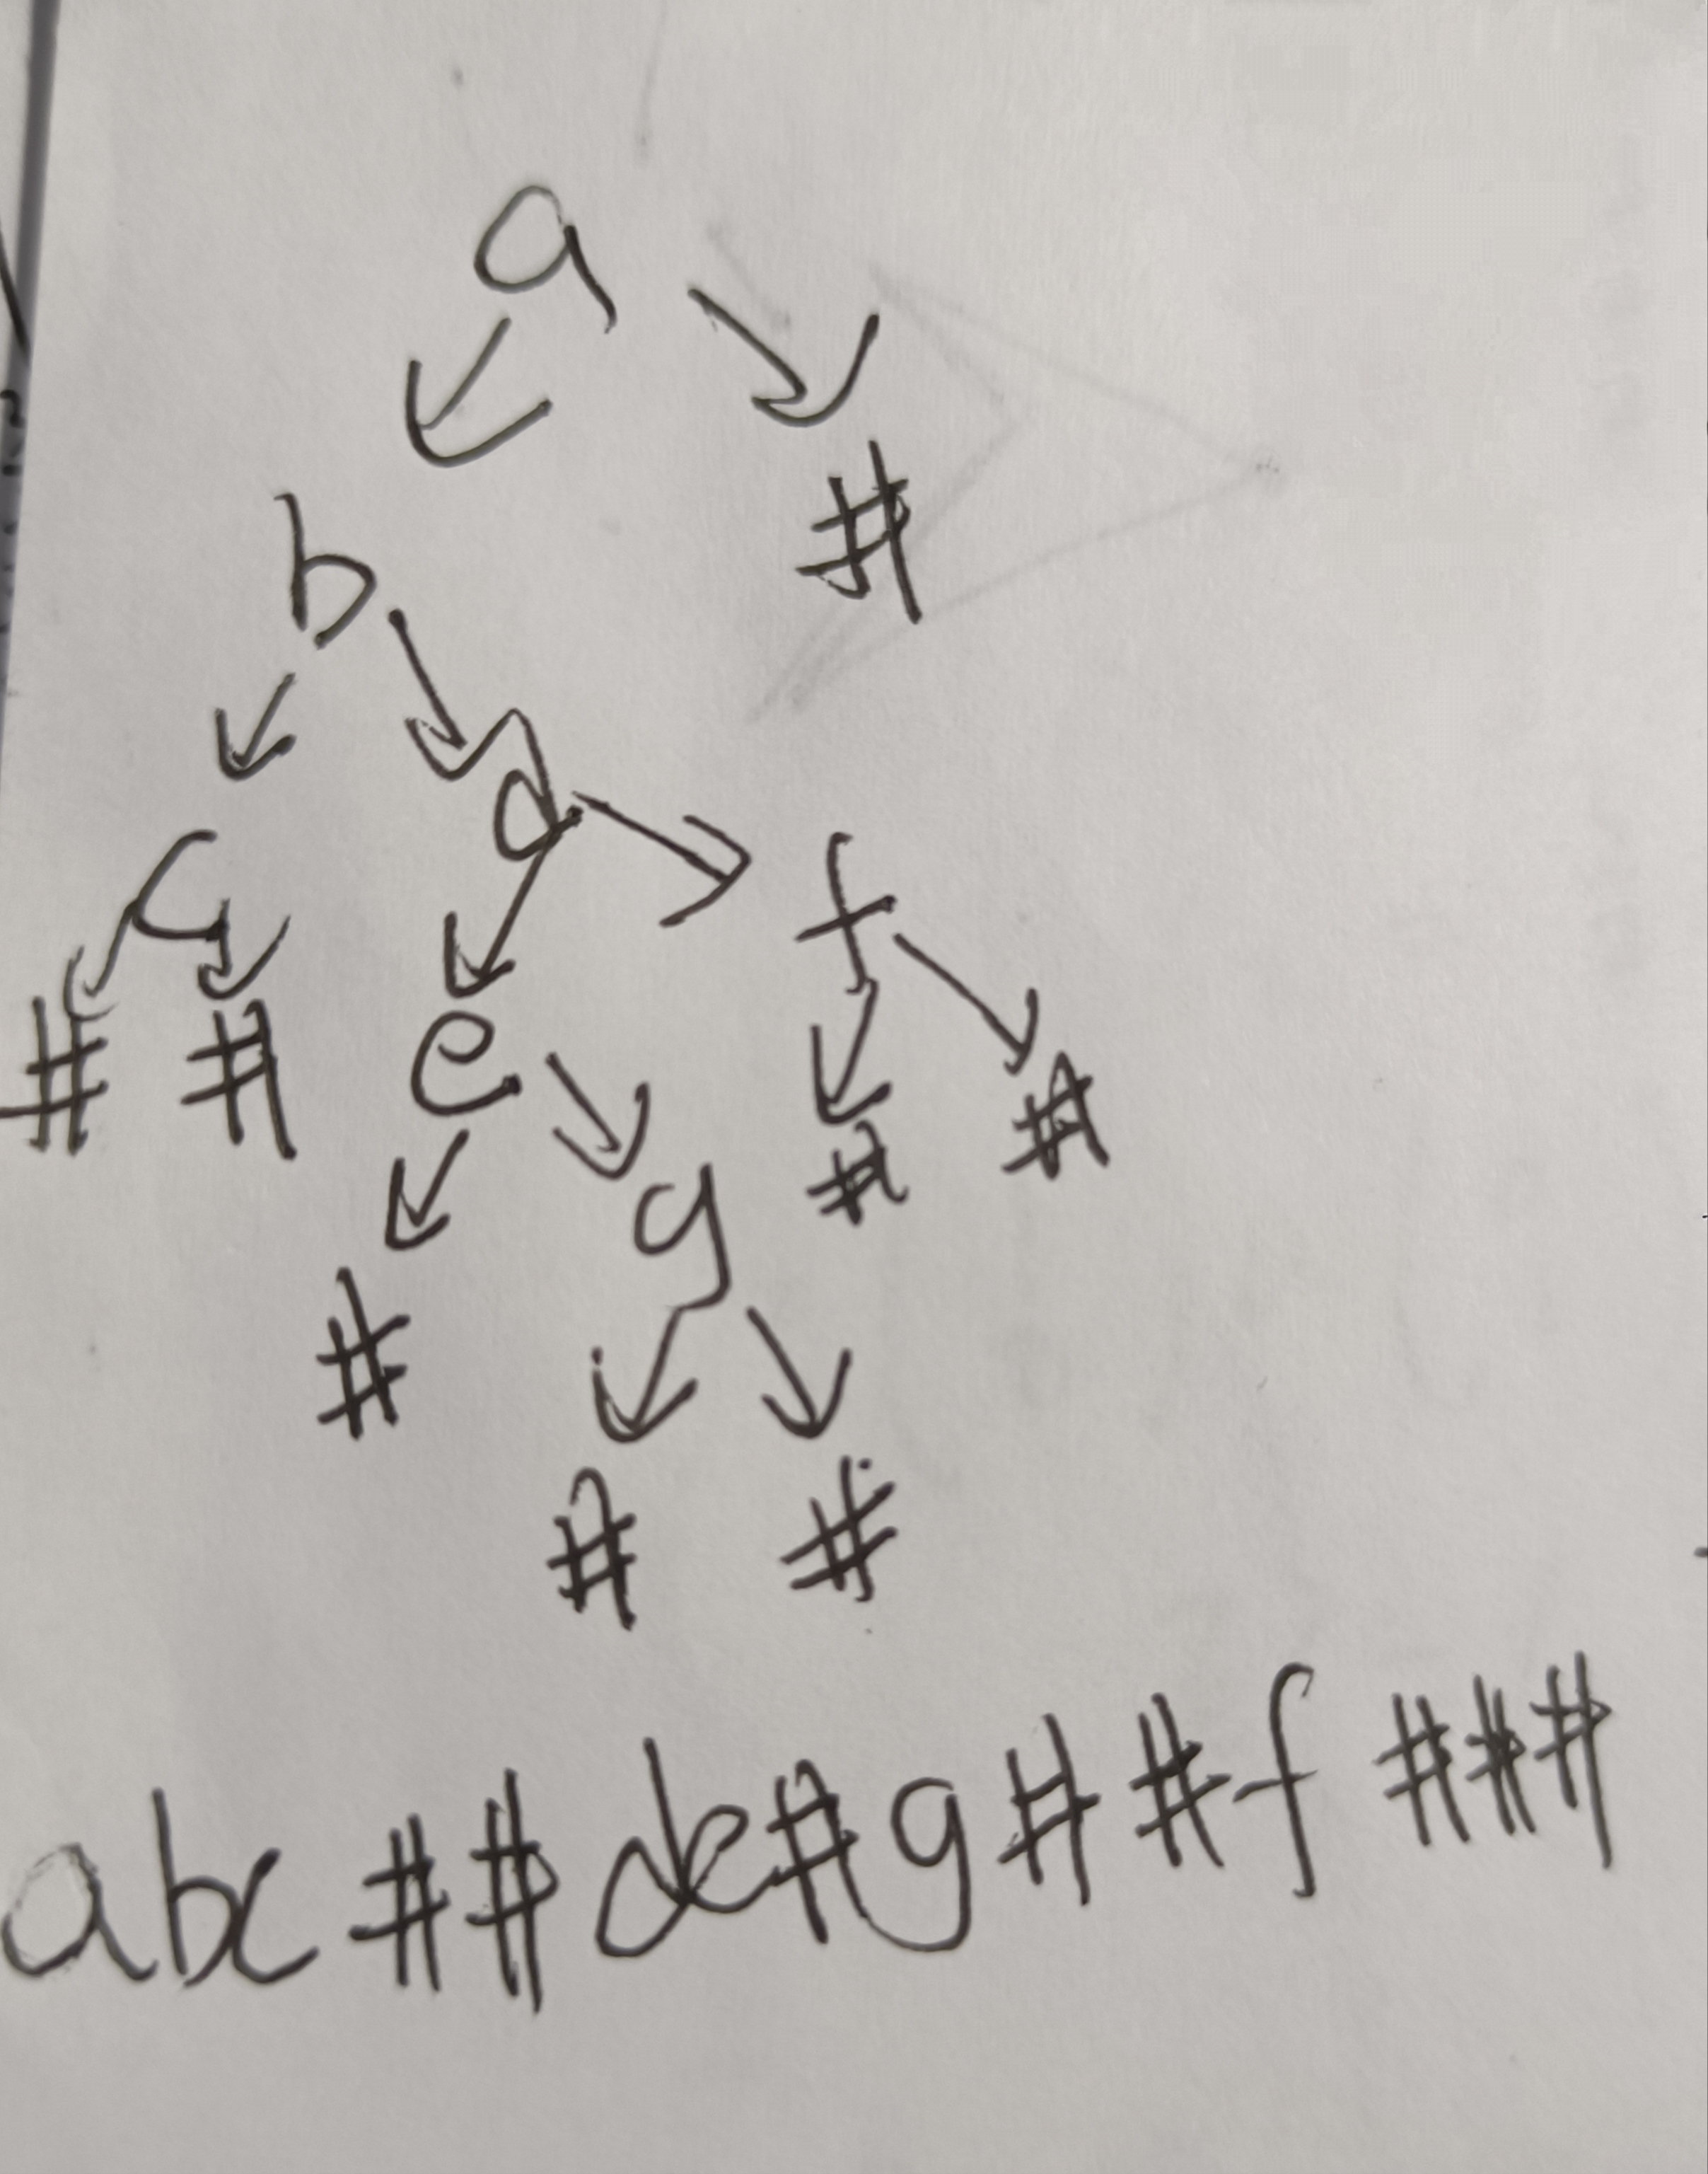 a
b #
c d f
# # e # #
# g
# #
abc##de#g##f###